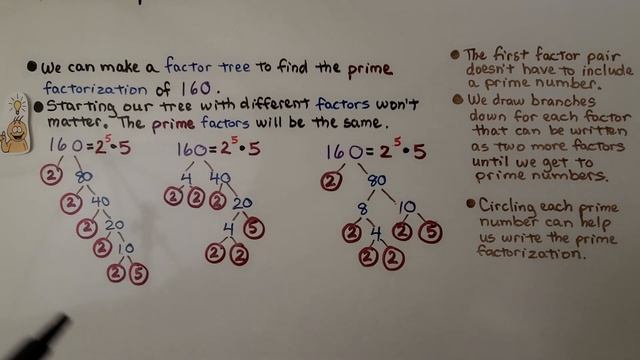 ● We can make a factor tree to find the prime
factorization of 160.
● Starting our tree with different factors won't
matter. The prime factors will be the same.
160=2⁵•5
2 80
2 40
2 20
2 10
2 5
160=2⁵•5
4 40
2 2 2 20
4 5
2 2
160=2⁵•5
2 80
8 10
2 4 2 5
2 2
● The first factor pair
doesn't have to include
a prime number.
● We draw branches
down for each factor
that can be written
as two more factors
until we get to
prime numbers.
● Circling each prime
number can help
us write the prime
factorization.